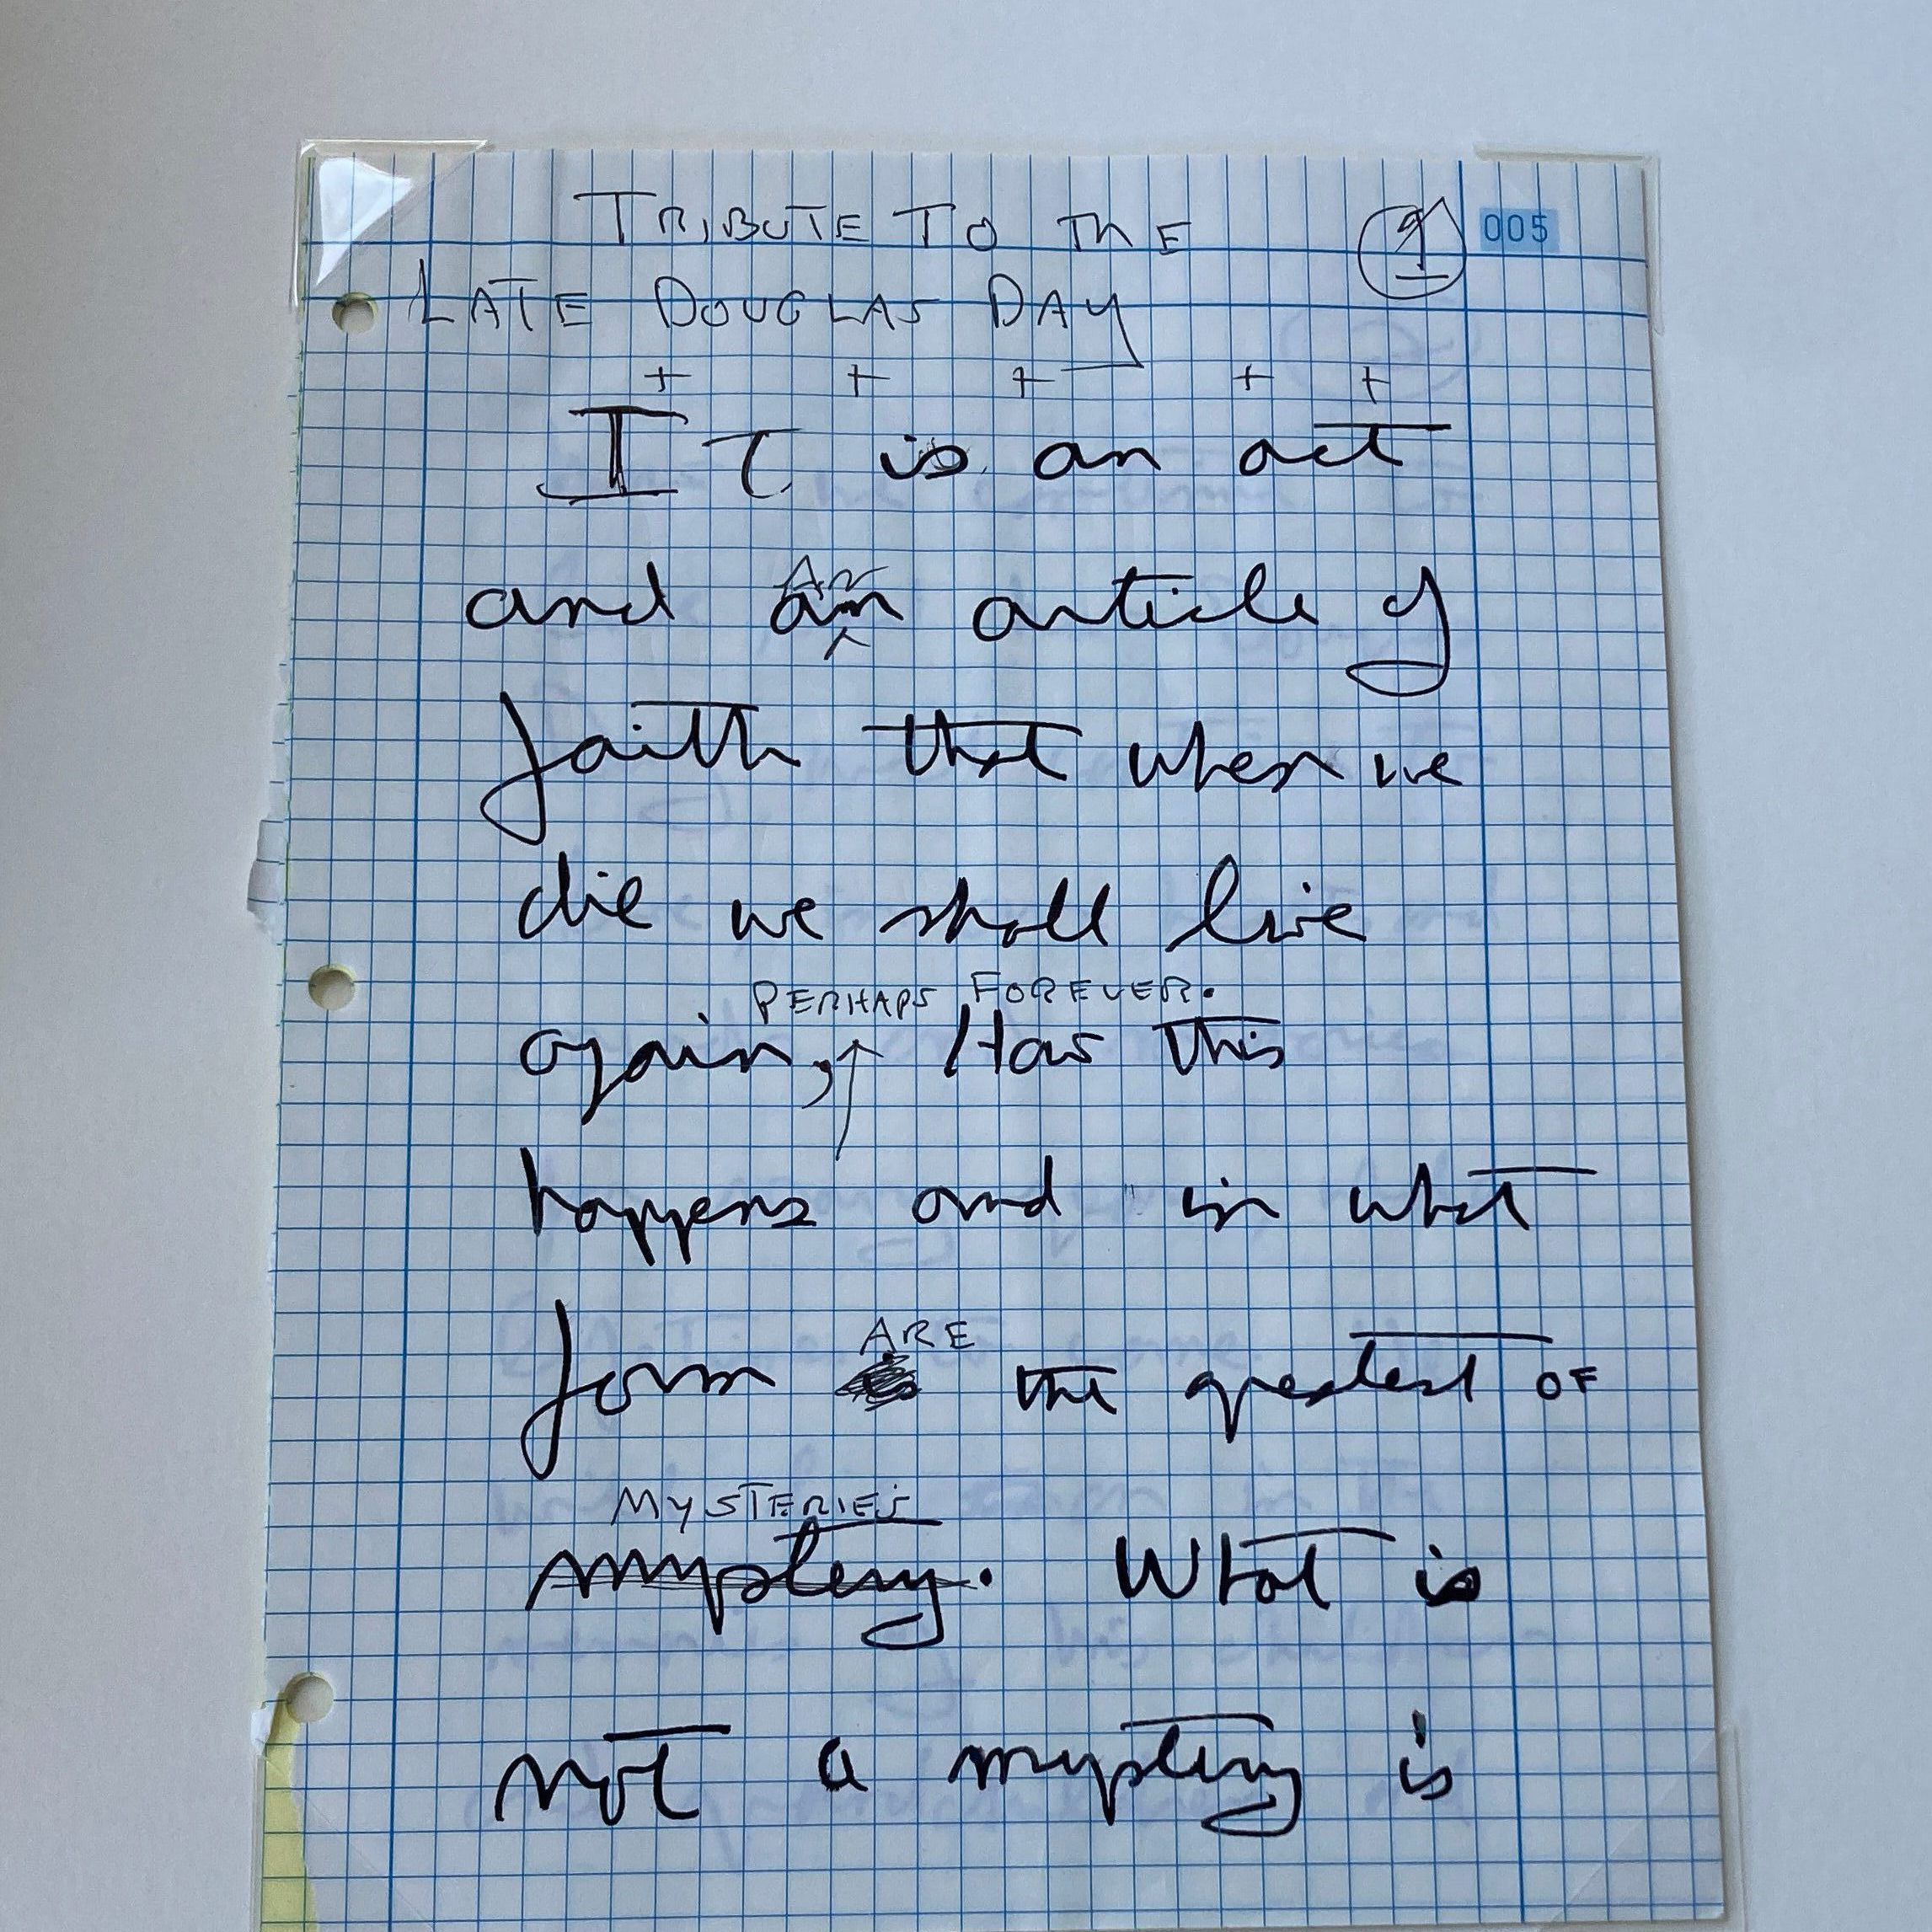 TRIBUTE TO THE 1 005
LATE DOUGLAS DAY
+ + + + +
IT is an act
AN
and an article of
faith that when we
die we shall live
PERHAPS FOREVER.
again, How this
happens and in what
ARE
form the greatest OF
MYSTERIES
mystery. What is
not a mystery is